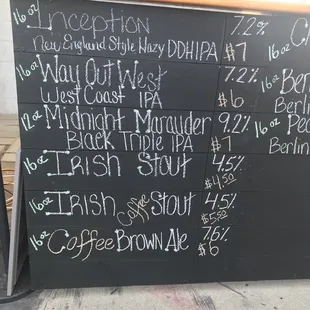 16oz Inception 7.2%
New England Style Hazy DDHIPA $7
16oz Way Out West 7.2%
West Coast IPA $6
12oz Midnight Marauder 9.2%
Black Triple IPA $7
16oz Irish Stout 4.5%
$4.50
16oz Irish Coffee Stout 4.5%
$5.50
16oz Coffee Brown Ale 7.6%
$6
16oz
16oz Ber
Berlin
16oz Pe
Berlin